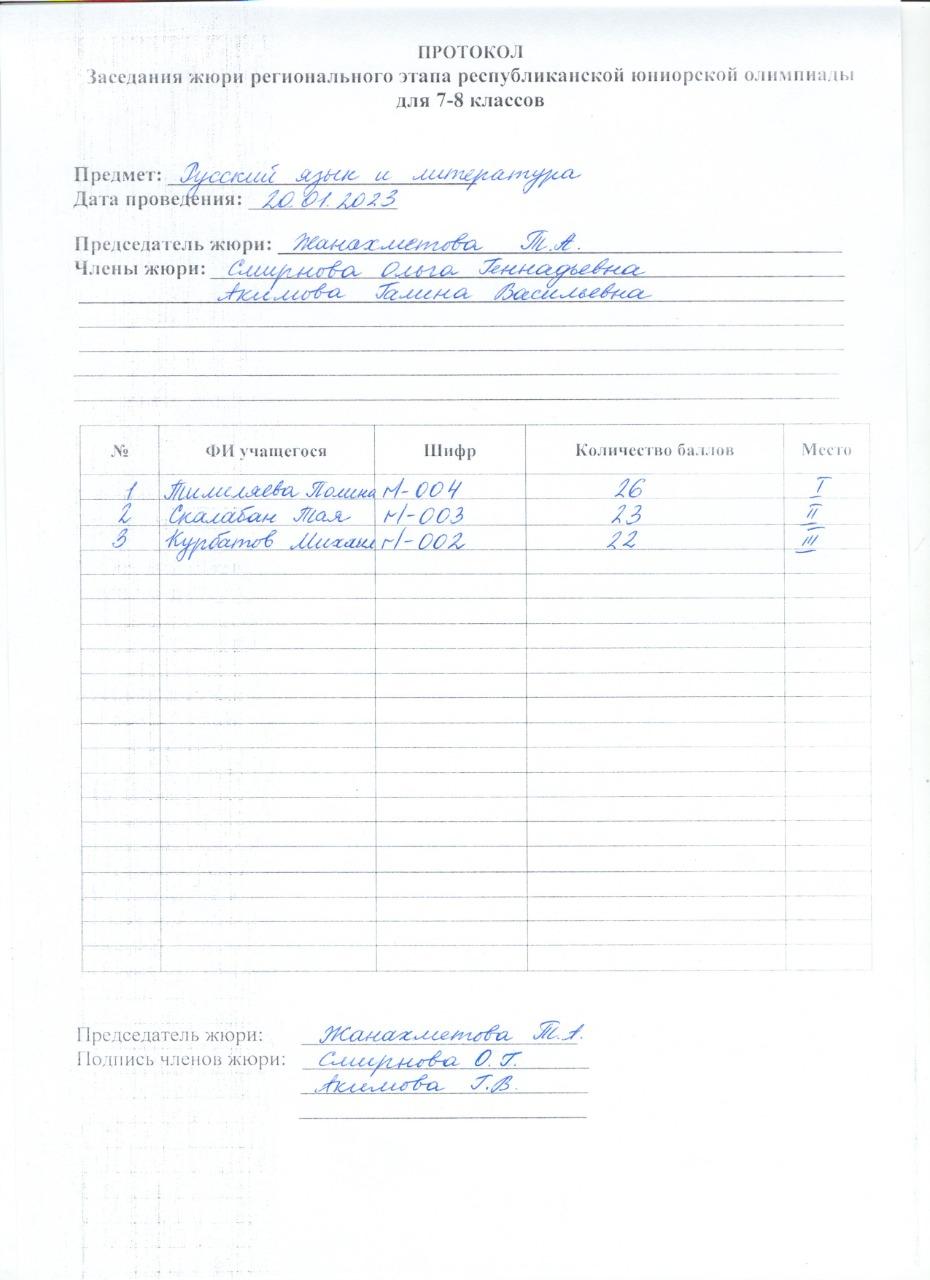 ПРОТОКОЛ
Заседания жюри регионального этапа республиканской юниорской олимпиады
для 7-8 классов
Предмет: Русский язык и литература
Дата проведения: 20.01.2023
Председатель жюри: Жанахметова Т.А.
Члены жюри: Смирнова Ольга Геннадьевна
Акимова Галина Васильевна
№ ФИ учащегося Шифр Количество баллов Место
1 Тимиляева Полина М-004 26 I
2 Скалабан Тая М-003 23 II
3 Курбатов М-002 22 III
Председатель жюри: Жанахметова Т.А.
Подпись членов жюри: Смирнова О.Г.
Акимова Г.В.